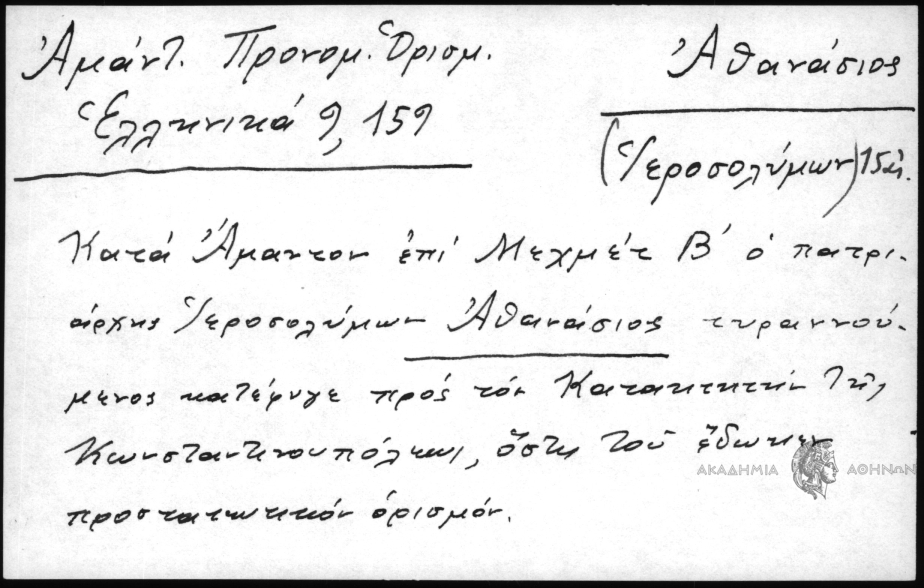 Ἀμάντ. Προνομ. Ὁρισμ.
Ἑλληνικά 9, 159
Ἀθανάσιος
(Ἱεροσολύμων) 15 αἰ.
Κατά Ἄμαντον ἐπί Μεχμέτ Β΄ ὁ πατρι-
άρχης Ἱεροσολύμων Ἀθανάσιος τυραννού-
μενος κατέφυγε πρός τόν Κατακτητήν τῆς
Κωνσταντινουπόλεως, ὅστις τοῦ ἔδωκεν
προστατευτικόν ὁρισμόν.
ΑΚΑΔΗΜΙΑ ΑΘΗΝΩΝ